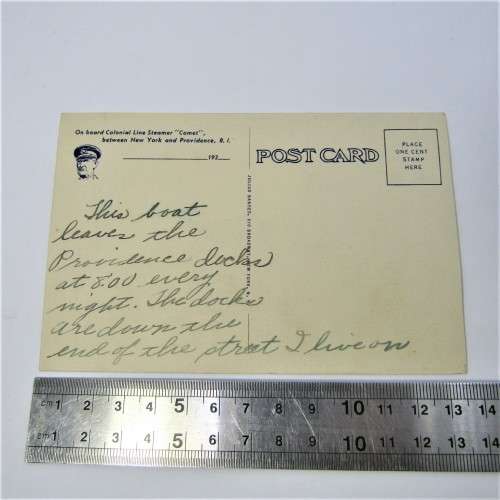 On board Colonial Line Steamer "Comet",
between New York and Providence, R. I.
193
POST CARD
PLACE
ONE CENT
STAMP
HERE
This boat
leaves the
Providence docks
at 8:00 every
night. The docks
are down the
end of the street I live on
cm 1 2 3 4 5 6 7 8 9 10 11 12 13 14
cm 1 2 3 4 5 6 7 8 9 10 11 12 13 14